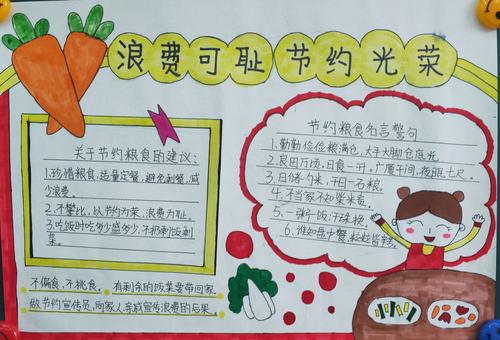 浪费可耻 节约光荣
关于节约粮食的建议：
1.珍惜粮食，适量定餐，避免剩餐，减
少浪费。
2.不攀比，以节约为荣，浪费为耻。
3.吃饭时吃多少盛多少，不扔剩饭剩
菜。
不偏食，不挑食。 有剩余的饭菜要带回家。
做节约宣传员，向家人亲戚宣传浪费的后果。
节约粮食名言警句
1.勤勤俭俭粮满仓，大手大脚仓底光
2.良田万顷，日食一升，广厦千间，夜眠七尺。
3.日储勺米，千日一石粮。
4.不当家不知柴米贵。
5.一粥一饭，汗珠换。
6.谁知盘中餐，粒粒皆辛苦。